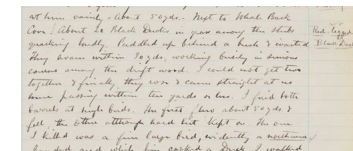 at him vainly - About 50 yds. Next to Whale Back
Cove. About 20 Black Ducks in grass among the sticks
quacking loudly. Paddled up behind a bush & waited
They swam within 30 yds. working busily in
among the drift wood. I could not get two
together & finally they rose & came straight at me
some passing within ten yards or less. I fired both
barrels at high birds. The first, about 30 yds &
fell, the other although hard hit kept on. The one
I killed was a fine large bird, evidently a northern
Red-legged
Black Duck